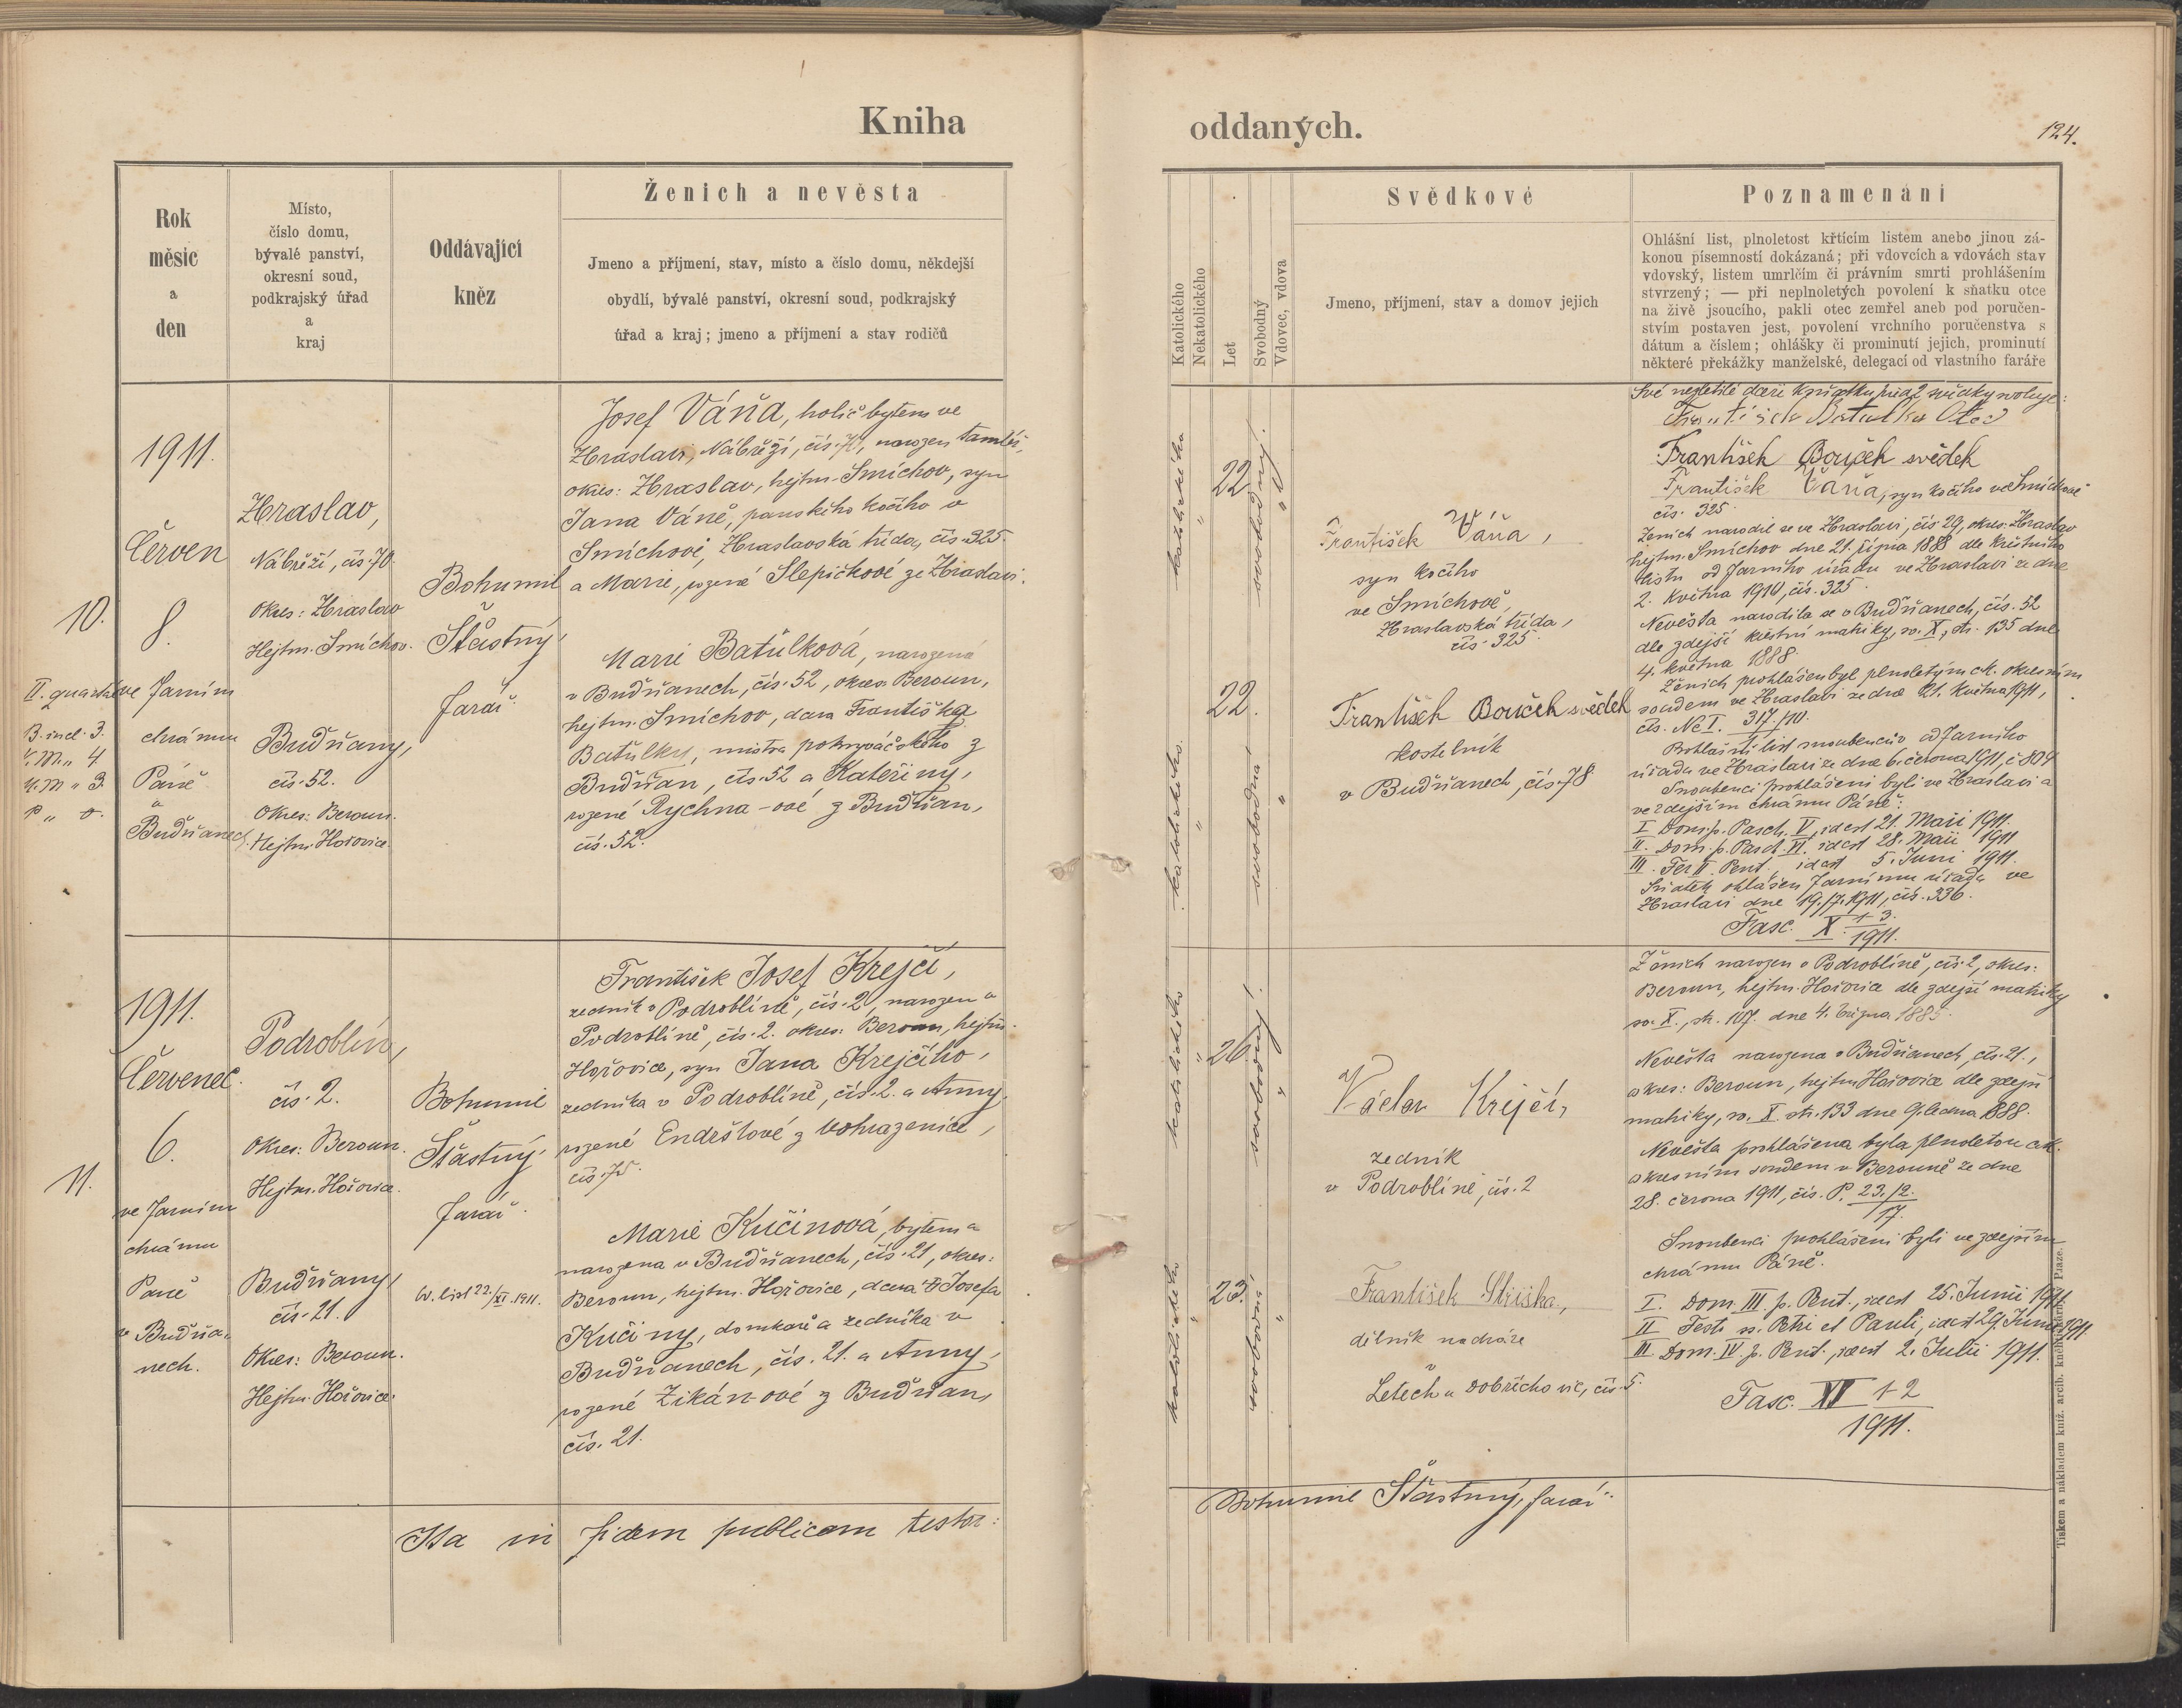 Kniha
oddaných.
124.
Rok
měsíc
a
den
Místo,
číslo domu,
bývalé panství,
okresní soud,
podkrajský úřad
a
kraj
Oddávající
kněz
Ženich a nevěsta
Jmeno a příjmení, stav, místo a číslo domu, někdejší
obydlí, bývalé panství, okresní soud, podkrajský
úřad a kraj; jmeno a příjmení a stav rodičů
Katolického
Nekatolického
Let
Svobodný
Vdovec, vdova
Svědkové
Jmeno, příjmení, stav a domov jejich
Poznamenání
Ohlášní list, plnoletost křticím listem anebo jinou zá-
konou písemností dokázaná; při vdovcích a vdovách stav
vdovský, listem umrlčím či právním smrti prohlášením
stvrzený; — při neplnoletých povolení k sňatku otce
na živě jsoucího, pakli otec zemřel aneb pod poručen-
stvím postaven jest, povolení vrchního poručenstva s
dátum a číslem; ohlášky či prominutí jejich, prominutí
některé překážky manželské, delegací od vlastního faráře
10.
II. quartále
B. incl. 3.
V. M. " 4
N. M " 3.
P " 0.
1911.
Červen
8.
ve farním
chrámu
Páně
v
Budňanech.
Zbraslav,
Nábřeží, čís. 70.
Okres: Zbraslav
Hejtm. Smíchov.
Budňany,
čís. 52.
Okres: Beroun.
Hejtm. Hořovice.
Bohumil
Šťastný
farář.
Josef Váňa, holič bytem ve
Zbraslavi, Nábřeží, čís. 70, narozen tamtéž,
okres: Zbraslav, hejtm. Smíchov, syn
Jana Váně, panského kočího v
Smíchově, Zbraslavská třída, čís. 325.
a Marie, rozené Slepičkové ze Zbraslavi.
Marie Baťulková, narozená
v Budňanech, čís. 52, okres Beroun,
hejtm. Smíchov, dcera Františka
Baťulky, mistra pokrývačského z
Budňan, čís. 52 a Kateřiny,
rozené Rychna-ové z Budňan,
čís. 52.
katolického
"
22
svobodný.
"
katolického.
"
22.
svobodná
"
František Váňa,
syn kočího
ve Smíchově,
Zbraslavská třída,
čís. 325.
František Bouček svědek
kostelník
v Budňanech, čís. 78
Své nezletilé dceři k sňatku před 2 svědky svoluje:
František Batulka Otec
František Bouček svědek
František Váňa, syn kočího ve Smíchově
čís. 325.
Ženich narodil se ve Zbraslavi, čís. 29, okres: Zbraslav
hejtm. Smíchov dne 21. října 1888 dle křestního
listu od farního úřadu ve Zbraslavi ze dne
2. května 1910, čís. 325.
Nevěsta narodila se v Budňanech, čís. 52
dle zdejší křestní matriky, sv. X, str. 135 dne
4. května 1888.
Ženich prohlášen byl plnoletým c.k. okresním
soudem ve Zbraslavi ze dne 21. května 1911,
čís. Nc I. 317./10.
Prohlašní list snoubenců od farního
úřadu ve Zbraslavi ze dne 6. června 1911, č 804
Snoubenci prohlášeni byli ve Zbraslavi a
ve zdejším chrámu Páně:
I Dom. p. Pasch. V, id est 21. Maii 1911.
II. Dom. p. Pasch. VI. id est 28. Maii 1911
III. Fer II. Pent id est 5. Juni 1911.
Sňatek ohlášen farnímu úřadu ve
Zbraslavi dne 19./7. 1911, čís. 336.
Fasc. X 1-3.
1911.
11.
1911.
Červenec.
6.
ve farním
chrámu
Páně
v Budňa-
nech.
Podroblín,
čís. 2.
Okres: Beroun.
Hejtm. Hořovice.
Budňany,
čís. 21.
Okres: Beroun.
Hejtm. Hořovice.
Bohumil
Šťastný
farář.
W. list 22./XI. 1911.
František Josef Krejčí,
zedník v Podroblíně, čís. 2, narozen v
Podroblíně, čís. 2. okres: Beroun, hejtm.
Hořovice, syn Jana Krejčího,
zedníka v Podroblíně, čís. 2. a Anny,
rozené Endrštové z Vohrazenice,
čís. 75.
Marie Kučinová, bytem a
narozena v Budňanech, čís. 21, okres:
Beroun, hejtm. Hořovice, dcera Josefa
Kučiny, domkaře a zedníka v
Budňanech, čís. 21. a Anny,
rozené Zikán-ové z Budňan,
čís. 21.
katolického
"
26
svobodný.
"
katolického
"
23.
svobodná
"
Václav Krejčí,
zedník
v Podroblíně, čís. 2
František Stříška,
dělník na dráze
v
Letech u Dobřichovic, čís. 5.
Ženich narozen v Podroblíně, čís. 2, okres:
Beroun, hejtm. Hořovice dle zdejší matriky
sv. X., str. 107. dne 4. srpna 1885.
Nevěsta narozena v Budňanech, čís. 21.,
okres: Beroun, hejtm. Hořovice dle zdejší
matriky, sv. X. str. 133 dne 9. ledna 1888.
Nevěsta prohlášena byla plnoletou c.k.
okresním soudem v Berouně ze dne
28. června 1911, čís. P. 23./2.
17.
Snoubenci prohlášeni byli ve zdejším
chrámu Páně.
I. Dom. III. p. Pent., id est 25. Junii 1911
II Festi ss. Petri et Pauli, id est 29. Junii 1911
III Dom. IV. p. Pent., id est 2. Julii 1911.
Fasc. XI 1-2
1911.
Ita in fidem publicam testor:
Bohumil Šťastný, farář.
Tiskem a nákladem kníž. arcib. knihtiskárny v Praze.